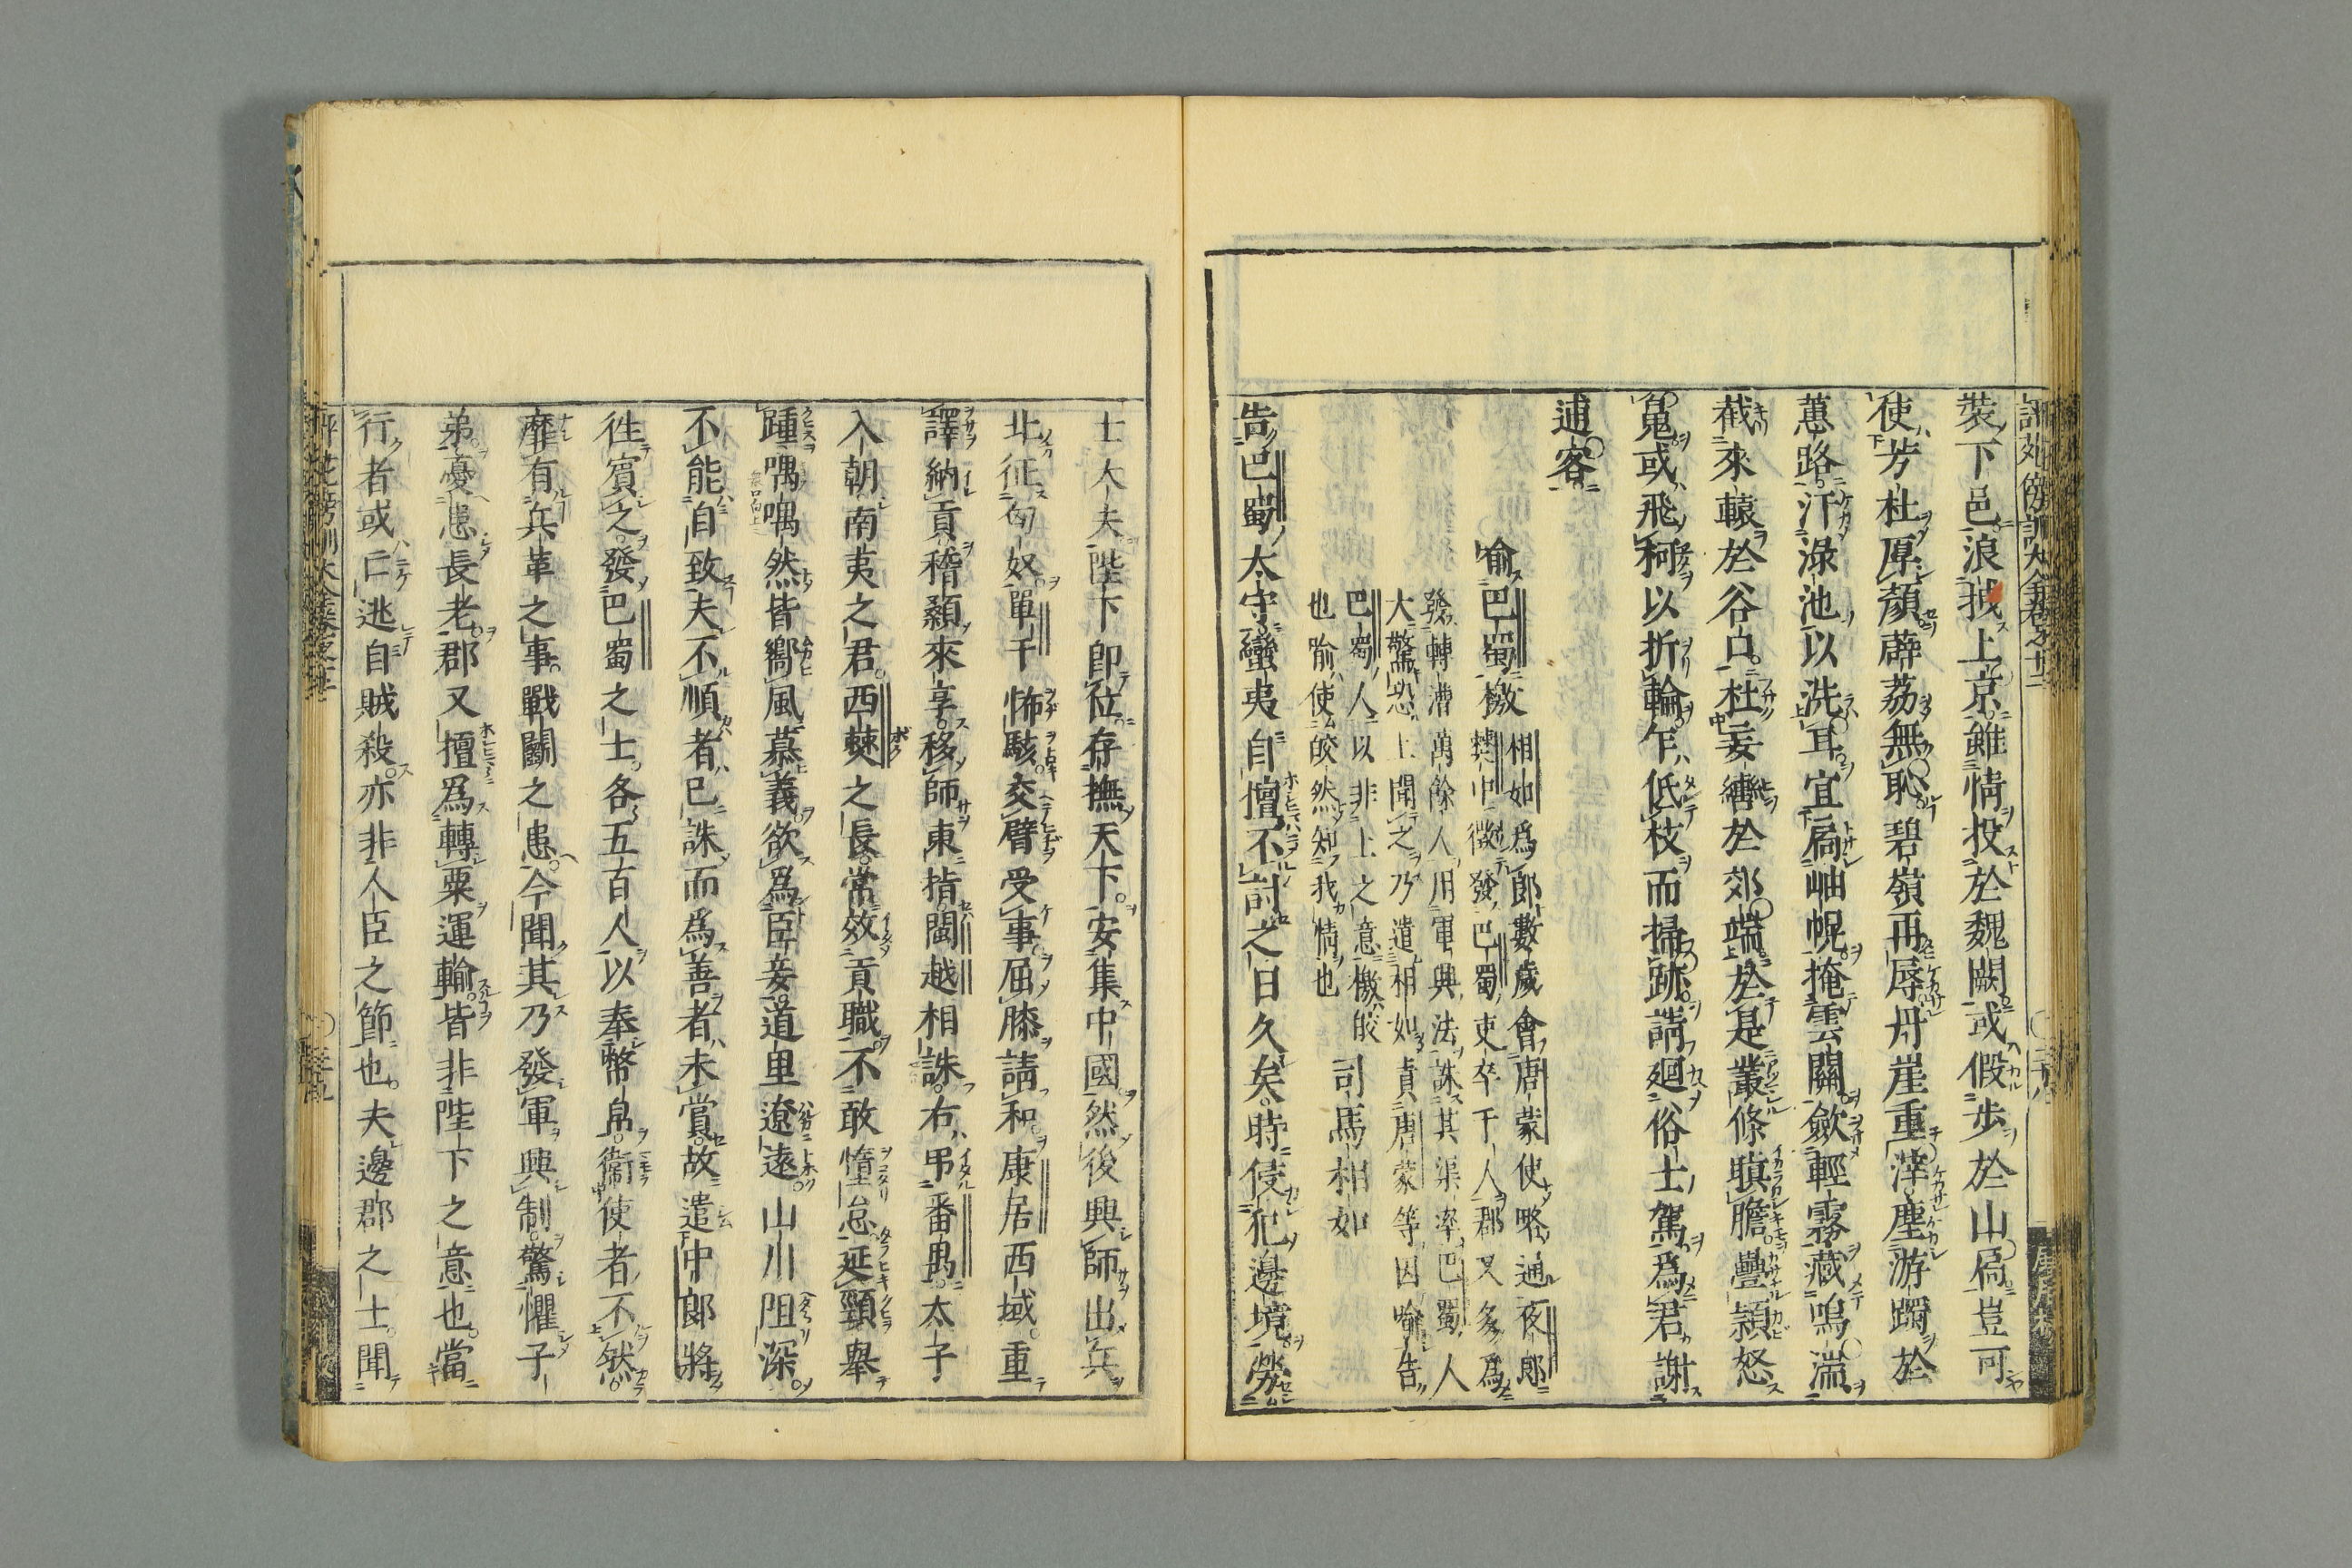 裝下邑浪拽上京雖情投於魏闕或假步於山扃豈可
使芳杜厚顏薜荔無恥碧嶺再辱丹崖重滓塵游躅於
蕙路汙淥池以洗耳宜扃岫幌掩雲關歛輕霧藏鳴湍
截來轅於谷口杜妄轡於郊端於是叢條瞋膽疊頴怒
魄或飛柯以折輪乍低枝而掃跡請廻俗士駕爲君謝
逋客
喻巴蜀檄
相如爲郎數歲會唐蒙使略通夜郎
僰中徵發巴蜀吏卒千人郡又多爲
發轉漕萬餘人用軍興法誅其渠率巴蜀人
大驚恐上聞之乃遣相如責唐蒙等因喻告
巴蜀人以非上之意檄皎
也喻使皎然知我情也
司馬相如
告巴蜀太守蠻夷自擅不討之日久矣時侵犯邊境勞
士大夫陛下卽位存撫天下安集中國然後興師出兵
北征匈奴單于怖駭交臂受事屈膝請和康居西域重
譯納貢稽顙來享移師東指閩越相誅右弔番禺太子
入朝南夷之君西僰之長常效貢職不敢惰怠延頸舉
踵喁喁然皆嚮風慕義欲爲臣妾道里遼遠山川阻深
不能自致夫不順者已誅而爲善者未賞故遣中郎將
徃賓之發巴蜀之士各五百人以奉幣帛衞使者不然
靡有兵革之事戰鬭之患今聞其乃發軍興制驚懼子
弟憂患長老郡又擅爲轉粟運輸皆非陛下之意也當
行者或亡逃自賊殺亦非人臣之節也夫邊郡之士聞